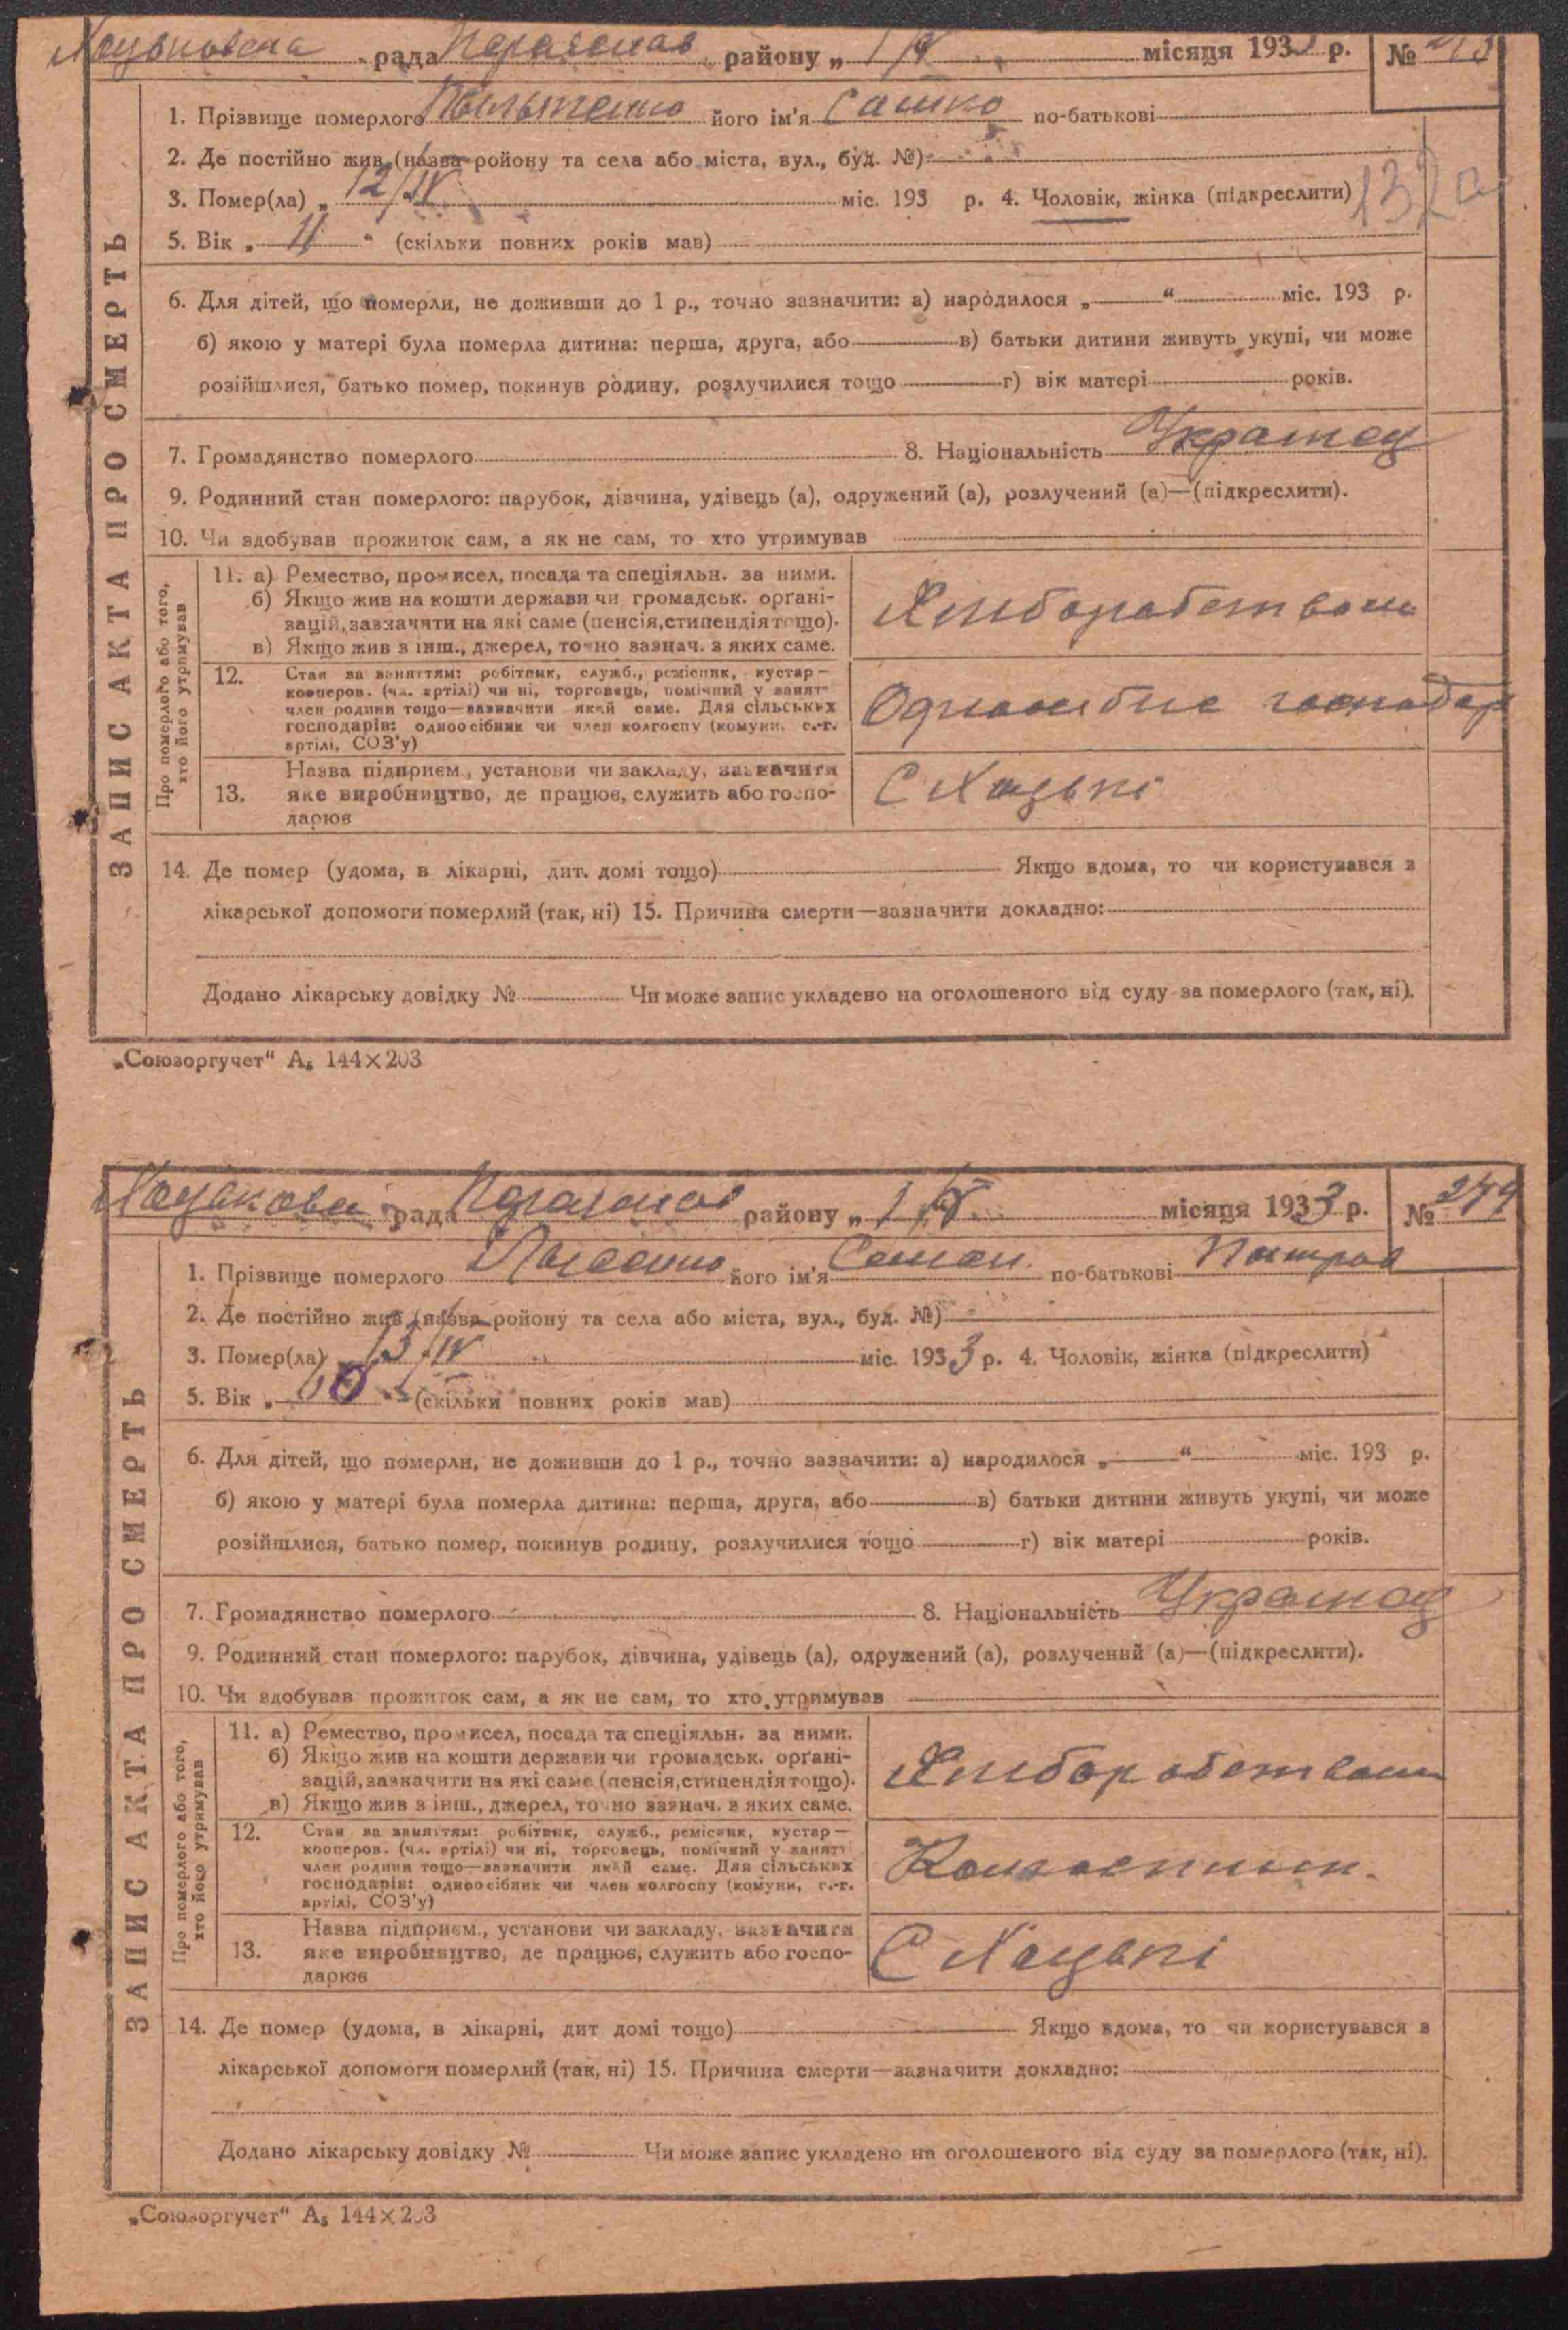 рада Переяслав району „ 1/V місяця 1933 р. №
1. Прізвище померлого його ім'я Сашко по-батькові
2. Де постійно жив (назва ройону та села або міста, вул., буд. №)
3. Помер(ла) „ 12/IV міс. 193 р. 4. Чоловік, жінка (підкреслити) 132а
5. Вік „ “ (скільки повних років мав)
6. Для дітей, що померли, не доживши до 1 р., точно зазначити: а) народилося „ “ міс. 193 р.
б) якою у матері була померла дитина: перша, друга, або в) батьки дитини живуть укупі, чи може
розійшлися, батько помер, покинув родину, розлучилися тощо г) вік матері років.
7. Громадянство померлого 8. Національність Українец
9. Родинний стан померлого: парубок, дівчина, удівець (а), одружений (а), розлучений (а)—(підкреслити).
10. Чи здобував прожиток сам, а як не сам, то хто утримував
ЗАПИС АКТА ПРО СМЕРТЬ
Про померлого або того,
хто його утримував
11. а) Ремество, промисел, посада та спеціяльн. за ними.
б) Якщо жив на кошти держави чи громадськ. орґані-
зацій, зазначити на які саме (пенсія, стипендія тощо).
в) Якщо жив з інш., джерел, точно зазнач. з яких саме.
Хліборобством
12. Стан за заняттям: робітник, служб., ремісник, кустар—
кооперов. (чл. артілі) чи ні, торговець, помічний у занят-
член родини тощо—зазначити який саме. Для сільських
господарів: одноосібник чи член колгоспу (комуни, с.-г.
артілі, СОЗ'у)
господар
13. Назва підприєм., установи чи закладу, зазначити
яке виробництво, де працює, служить або госпо-
дарює
С Хоцьки
14. Де помер (удома, в лікарні, дит. домі тощо) Якщо вдома, то чи користувався з
лікарської допомоги померлий (так, ні) 15. Причина смерти—зазначити докладно:
Додано лікарську довідку № Чи може запис укладено на оголошеного від суду за померлого (так, ні).
„Союзоргучет“ А₅ 144×203
рада Переяслав району „ 1/V місяця 1933 р. № 249
1. Прізвище померлого його ім'я Семен по-батькові Петров
2. Де постійно жив (назва ройону та села або міста, вул., буд. №)
3. Помер(ла) 13/IV міс. 1933 р. 4. Чоловік, жінка (підкреслити)
5. Вік „ (скільки повних років мав)
6. Для дітей, що померли, не доживши до 1 р., точно зазначити: а) народилося „ “ міс. 193 р.
б) якою у матері була померла дитина: перша, друга, або в) батьки дитини живуть укупі, чи може
розійшлися, батько помер, покинув родину, розлучилися тощо г) вік матері років.
7. Громадянство померлого 8. Національність Українец
9. Родинний стан померлого: парубок, дівчина, удівець (а), одружений (а), розлучений (а)—(підкреслити).
10. Чи здобував прожиток сам, а як не сам, то хто утримував
ЗАПИС АКТА ПРО СМЕРТЬ
Про померлого або того,
хто його утримував
11. а) Ремество, промисел, посада та спеціяльн. за ними.
б) Якщо жив на кошти держави чи громадськ. орґані-
зацій, зазначити на які саме (пенсія, стипендія тощо).
в) Якщо жив з інш., джерел, точно зазнач. з яких саме.
Хліборобством
12. Стан за заняттям: робітник, служб., ремісник, кустар—
кооперов. (чл. артілі) чи ні, торговець, помічний у занятт
член родини тощо—зазначити який саме. Для сільських
господарів: одноосібник чи член колгоспу (комуни, с.-г.
артілі, СОЗ'у)
Колгоспник.
13. Назва підприєм., установи чи закладу, зазначити
яке виробництво, де працює, служить або госпо-
дарює
С Хоцькі
14. Де помер (удома, в лікарні, дит домі тощо) Якщо вдома, то чи користувався з
лікарської допомоги померлий (так, ні) 15. Причина смерти—зазначити докладно:
Додано лікарську довідку № Чи може запис укладено на оголошеного від суду за померлого (так, ні).
„Союзоргучет“ А₅ 144×203